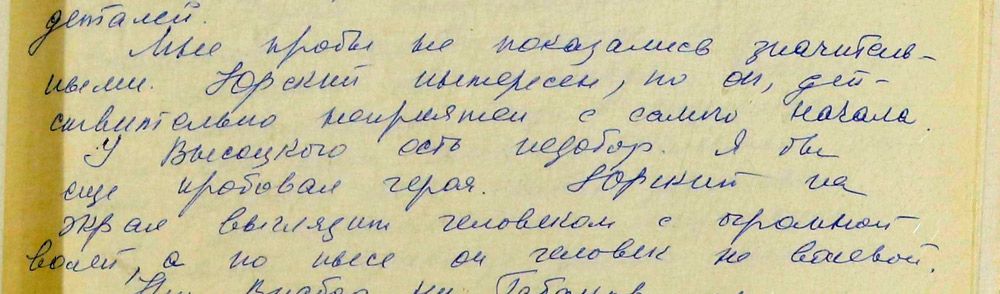 деталей.
Мне пробы не показались значитель-
ными. Юрский интересен, но он, дей-
ствительно неприятен с самого начала.
У Высоцкого есть недобор. Я бы
еще пробовал героя. Юрский на
экран выглядит человеком с огромной
волей, а по пьесе он человек не волевой.